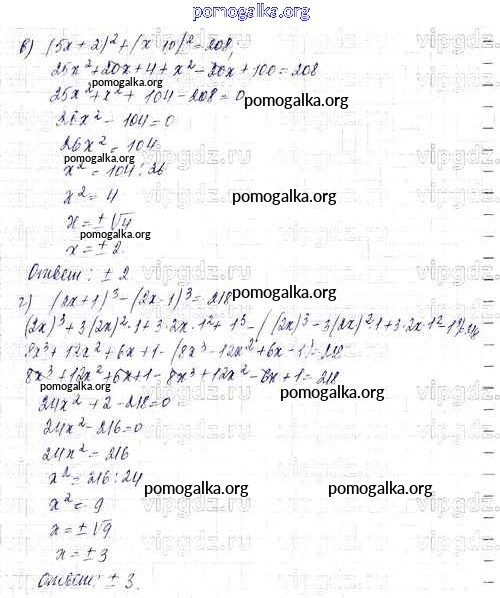 pomogalka.org
в) (5x+2)²+(x-10)²=208,
25x²+20x+4+x²-20x+100=208
pomogalka.org
25x²+x²+104-208=0
pomogalka.org
26x²-104=0
26x²=104
pomogalka.org
x²=104:26
x²=4
pomogalka.org
x=±√4
pomogalka.org
x=±2.
Ответ: ±2
г) (2x+1)³-(2x-1)³=218
pomogalka.org
(2x)³+3(2x)²·1+3·2x·1²+1³-((2x)³-3(2x)²·1+3·2x·1²-1³)=218
8x³+12x²+6x+1-(8x³-12x²+6x-1)=218
pomogalka.org
8x³+12x²+6x+1-8x³+12x²-6x+1=218
pomogalka.org
24x²+2-218=0
24x²-216=0
24x²=216
x²=216:24
pomogalka.org
pomogalka.org
x²=9
x=±√9
x=±3
Ответ: ±3.
vipgdz.ru